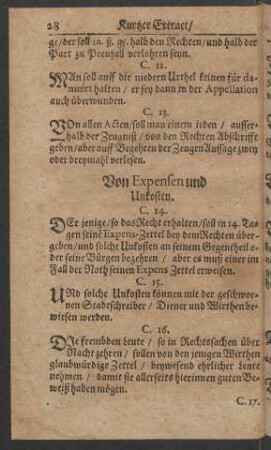 28 Kurtzer Extract/
ge/der soll 10. ß. gr. halb den Rechten/und halb der
Part zu Poenfall verlohren seyn.
C. 12.
MAn soll auff die niedern Urthel keinen für da-
mnirt halten / er sey dann in der Appellation
auch überwunden.
C. 13.
VOn allen Acten/soll man einem ieden / ausser-
halb der Zeugniß / von den Rechten Abschrifft
geben/aber auff Begehren der Zeugen Aussage zwey
oder dreymahl verlesen.
Von Expensen und
Unkosten.
C. 14.
DEr jenige/so das Recht erhalten/soll in 14. Ta-
gen seine Expens-Zettel bey dem Rechten über-
geben/und solche Unkosten an seinem Gegentheil o-
der seine Bürgen begehren / aber es muß einer im
Fall der Noth seinen Expens Zettel erweisen.
C. 15.
UNd solche Unkosten können mit der geschwor-
nen Stadtschreiber / Diener und Wirthen be-
wiesen werden.
C. 16.
DIe frembden Leute / so in Rechtssachen über
Nacht gehren / sollen von den jenigen Wirthen
glaubwürdige Zettel / beywesend ehrlicher Leute
nehmen / damit sie allerseits hierinnen guten Be-
weiß haben mögen.
C. 17.